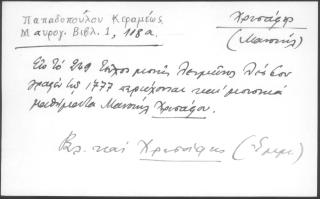 Παπαδοπούλου Κεραμέως
Μαυρογ. Βιβλ. 1, 118α.
Χρυσάφης
(Μανουήλ)
Εις το 249 τεύχος μονής Λειμῶνος Λέσβου
γραφέν τω 1777 περιέχονται και μουσικά
μαθήματα Μανουήλ Χρυσάφου.
Βλ. και Χρυσάφης (Εμμ.)